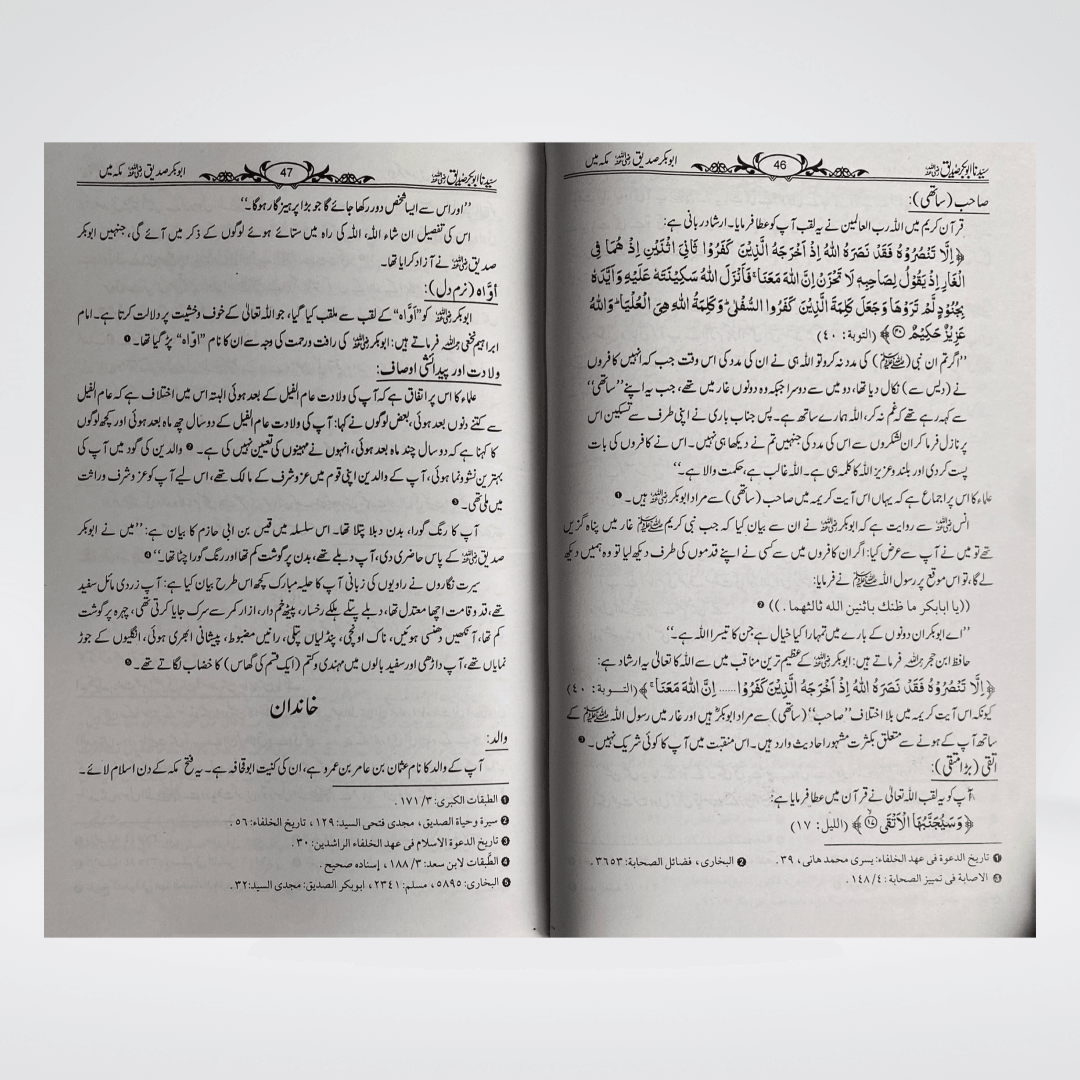 سیدنا ابوبکر صدیق رضی اللہ عنہ
46
ابوبکر صدیق رضی اللہ عنہ مکہ میں
صاحب (ساتھی):
قرآن کریم میں اللہ رب العالمین نے یہ لقب آپ کو عطا فرمایا۔ ارشاد ربانی ہے:
﴿اِلَّا تَنْصُرُوْهُ فَقَدْ نَصَرَهُ اللّٰهُ اِذْ اَخْرَجَهُ الَّذِيْنَ كَفَرُوْا ثَانِيَ اثْنَيْنِ اِذْ هُمَا فِي
الْغَارِ اِذْ يَقُوْلُ لِصَاحِبِهٖ لَا تَحْزَنْ اِنَّ اللّٰهَ مَعَنَا ۚ فَاَنْزَلَ اللّٰهُ سَكِيْنَتَهٗ عَلَيْهِ وَاَيَّدَهٗ
بِجُنُوْدٍ لَّمْ تَرَوْهَا وَجَعَلَ كَلِمَةَ الَّذِيْنَ كَفَرُوا السُّفْلٰى ؕ وَكَلِمَةُ اللّٰهِ هِيَ الْعُلْيَا ؕ وَاللّٰهُ
عَزِيْزٌ حَكِيْمٌ ۝۴۰﴾ (التوبة: ٤٠)
’’اگر تم ان نبی (ﷺ) کی مدد نہ کرو تو اللہ ہی نے ان کی مدد کی اس وقت جب کہ انہیں کافروں
نے (دیس سے) نکال دیا تھا، دو میں سے دوسرا جبکہ وہ دونوں غار میں تھے، جب یہ اپنے ’’ساتھی‘‘
سے کہہ رہے تھے کہ غم نہ کر، اللہ ہمارے ساتھ ہے۔ پس جناب باری نے اپنی طرف سے تسکین اس
پر نازل فرما کر ان لشکروں سے اس کی مدد کی جنہیں تم نے دیکھا ہی نہیں۔ اس نے کافروں کی بات
پست کر دی اور بلند و عزیز اللہ کا کلمہ ہی ہے۔ اللہ غالب ہے، حکمت والا ہے۔‘‘
علماء کا اس پر اجماع ہے کہ یہاں اس آیت کریمہ میں صاحب (ساتھی) سے مراد ابوبکر رضی اللہ عنہ ہیں۔ ❶
انس رضی اللہ عنہ سے روایت ہے کہ ابوبکر رضی اللہ عنہ نے ان سے بیان کیا کہ جب نبی کریم ﷺ غار میں پناہ گزیں
تھے تو میں نے آپ سے عرض کیا: اگر ان کافروں میں سے کسی نے اپنے قدموں کی طرف دیکھ لیا تو وہ ہمیں دیکھ
لے گا، تو اس موقع پر رسول اللہ ﷺ نے فرمایا:
((یا ابابکر ما ظنك باثنین الله ثالثهما .)) ❷
’’اے ابوبکر ان دونوں کے بارے میں تمہارا کیا خیال ہے جن کا تیسرا اللہ ہے۔‘‘
حافظ ابن حجر رحمہ اللہ فرماتے ہیں: ابوبکر رضی اللہ عنہ کے عظیم ترین مناقب میں سے اللہ کا تعالیٰ یہ ارشاد ہے:
﴿اِلَّا تَنْصُرُوْهُ فَقَدْ نَصَرَهُ اللّٰهُ اِذْ اَخْرَجَهُ الَّذِيْنَ كَفَرُوْا...... اِنَّ اللّٰهَ مَعَنَا ۚ﴾ (التوبة: ٤٠)
کیونکہ اس آیت کریمہ میں بلا اختلاف ’’صاحب‘‘ (ساتھی) سے مراد ابوبکرؓ ہیں اور غار میں رسول اللہ ﷺ کے
ساتھ آپ کے ہونے سے متعلق بکثرت مشہور احادیث وارد ہیں۔ اس منقبت میں آپ کا کوئی شریک نہیں۔ ❸
اتقی (بڑا متقی):
آپ کو یہ لقب اللہ تعالیٰ نے قرآن میں عطا فرمایا ہے:
﴿وَسَيُجَنَّبُهَا الْاَتْقَى ۝۱۷﴾ (الليل: ١٧)
❶ تاریخ الدعوة فی عهد الخلفاء: یسری محمد هانی، ٣٩ .
❷ البخاری، فضائل الصحابة: ٣٦٥٣ .
❸ الاصابة فی تمییز الصحابة: ٤/١٤٨ .
سیدنا ابوبکر صدیق رضی اللہ عنہ
47
ابوبکر صدیق رضی اللہ عنہ مکہ میں
’’اور اس سے ایسا شخص دور رکھا جائے گا جو بڑا پرہیز گار ہوگا۔‘‘
اس کی تفصیل ان شاء اللہ، اللہ کی راہ میں ستائے ہوئے لوگوں کے ذکر میں آئے گی، جنہیں ابوبکر
صدیق رضی اللہ عنہ نے آزاد کرایا تھا۔
أوّاه (نرم دل):
ابوبکر رضی اللہ عنہ کو ’’أوّاه‘‘ کے لقب سے ملقب کیا گیا، جو اللہ تعالیٰ کے خوف و خشیت پر دلالت کرتا ہے۔ امام
ابراہیم نخعی رحمہ اللہ فرماتے ہیں: ابوبکر رضی اللہ عنہ کی رافت و رحمت کی وجہ سے ان کا نام ’’اوّاه‘‘ پڑ گیا تھا۔ ❶
ولادت اور پیدائشی اوصاف:
علماء کا اس پر اتفاق ہے کہ آپ کی ولادت عام الفیل کے بعد ہوئی البتہ اس میں اختلاف ہے کہ عام الفیل
سے کتنے دنوں بعد ہوئی، بعض لوگوں نے کہا: آپ کی ولادت عام الفیل کے دو سال چھ ماہ بعد ہوئی اور کچھ لوگوں
کا کہنا ہے کہ دو سال چند ماہ بعد ہوئی، انہوں نے مہینوں کی تعیین نہیں کی ہے۔ ❷ والدین کی گود میں آپ کی
بہترین نشو و نما ہوئی، آپ کے والدین اپنی قوم میں عز و شرف کے مالک تھے، اس لیے آپ کو عز و شرف وراثت
میں ملی تھی۔ ❸
آپ کا رنگ گورا، بدن دبلا پتلا تھا۔ اس سلسلہ میں قیس بن ابی حازم کا بیان ہے: ’’میں نے ابوبکر
صدیق رضی اللہ عنہ کے پاس حاضری دی، آپ دبلے تھے، بدن پر گوشت کم تھا اور رنگ گورا چٹا تھا۔‘‘ ❹
سیرت نگاروں نے راویوں کی زبانی آپ کا حلیہ مبارک کچھ اس طرح بیان کیا ہے: آپ زردی مائل سفید
تھے، قد و قامت اچھا معتدل تھا، دبلے پتلے ہلکے رخسار، پیٹھ خم دار، ازار کمر سے سرک جایا کرتی تھی، چہرہ پر گوشت
کم تھا، آنکھیں دھنسی ہوئیں، ناک اونچی، پنڈلیاں پتلی، رانیں مضبوط، پیشانی ابھری ہوئی، انگلیوں کے جوڑ
نمایاں تھے، آپ داڑھی اور سفید بالوں میں مہندی و کتم (ایک قسم کی گھاس) کا خضاب لگاتے تھے۔ ❺
خاندان
والد:
آپ کے والد کا نام عثمان بن عامر بن عمرو ہے، ان کی کنیت ابوقحافہ ہے۔ یہ فتح مکہ کے دن اسلام لائے۔
❶ الطبقات الکبری: ٣/١٧١ .
❷ سیرة وحیاة الصدیق، مجدی فتحی السید: ١٢٩، تاریخ الخلفاء: ٥٦ .
❸ تاریخ الدعوة الاسلام فی عهد الخلفاء الراشدین: ٣٠ .
❹ الطَّبقات لابن سعد: ٣/١٨٨، إسناده صحیح .
❺ البخاری: ٥٨٩٥، مسلم: ٢٣٤١، ابوبکر الصدیق: مجدی السید: ٣٢ .